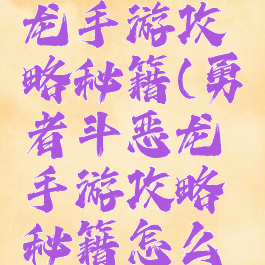 龙手游攻
略秘籍(勇
者斗恶龙
手游攻略
秘籍怎么